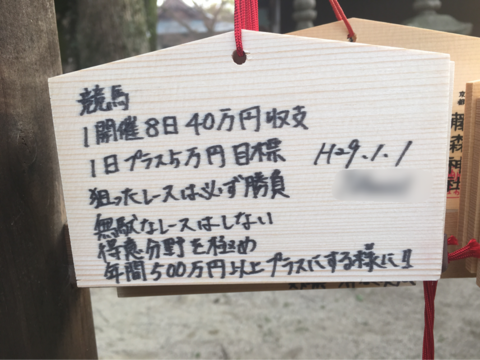 競馬
1開催8日40万円収支
1日プラス5万円目標
H29.1.1
狙ったレースは必ず勝負
無駄なレースはしない
得意分野を極め
年間500万円以上プラスにする様に!!
京都
藤森神社